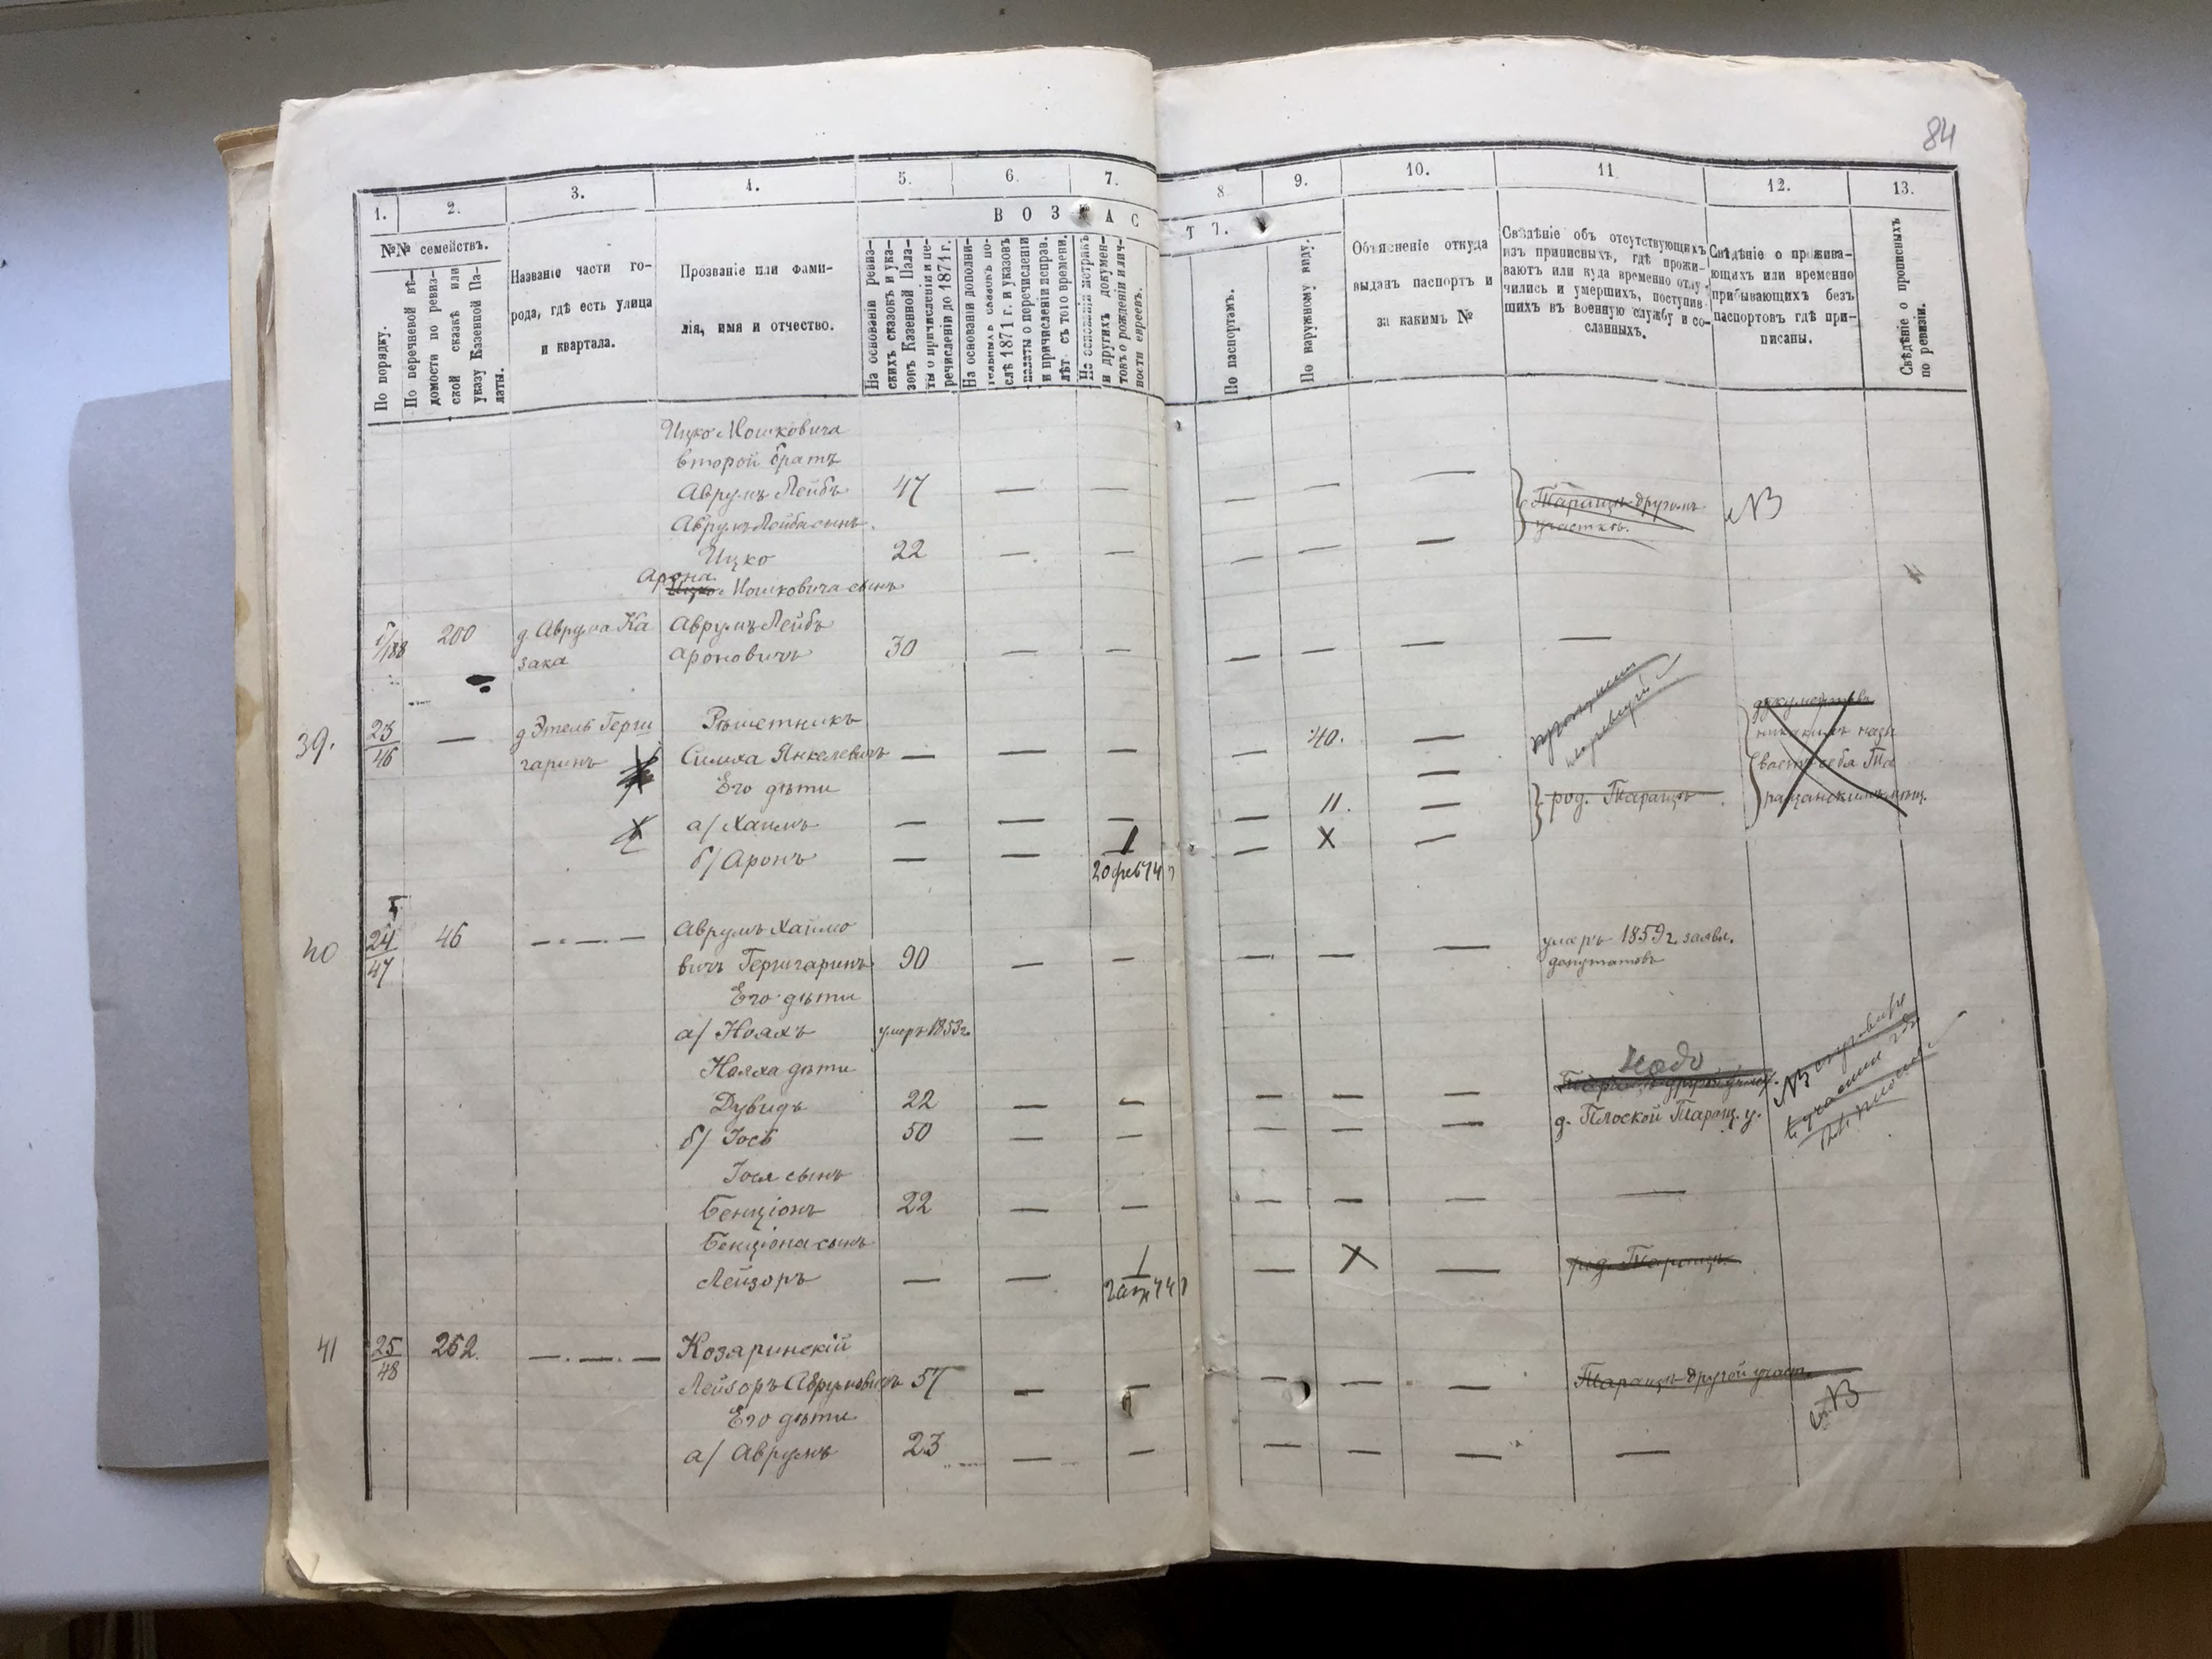 84
1. 2. 3. 4. 5. 6. 7. 8 9. 10. 11. 12. 13.
В О З Р А С
Т 7.
№№ семействъ.
По порядку.
По перечневой вѣ-
домости по ревиз-
ской сказкѣ или
указу Казенной Па-
латы.
Названіе части го-
рода, гдѣ есть улица
и квартала.
Прозваніе или фами-
лія, имя и отчество.
На основаніи ревиз-
скихъ сказокъ и ука-
зовъ Казенной Пала-
ты о причисленіи и пе-
речисленіи до 1871 г.
На основаніи дополни-
тельныхъ сказокъ по-
слѣ 1871 г. и указовъ
палаты о перечисленіи
и причисленіи исправ.
лѣт. съ того времени.
На основаніи метрикъ
и другихъ докумен-
товъ о рожденіи и лич-
ности евреевъ.
По паспортамъ.
По наружному виду.
Объясненіе откуда
выданъ паспортъ и
за какимъ №
Свѣдѣніе объ отсутствующихъ
изъ приписныхъ, гдѣ прожи-
ваютъ или куда временно отлу-
чились и умершихъ, поступив
шихъ въ военную службу и со-
сланныхъ.
Свѣдѣніе о прожива-
ющихъ или временно
прибывающихъ безъ
паспортовъ гдѣ при-
писаны.
Свѣдѣніе о прописныхъ
по ревизіи.
Ицко Мошковича
второй братъ
Аврумъ Лейбъ 47 — — — — — Таращѣ другомъ
участкѣ. NB
Аврумъ Лейба сынъ
Ицко 22 — — — — —
Арона
Ицко Мошковича сынъ
188 200 д Аврума Ка Аврумъ Лейбъ
зака Ароновичъ 30 — — — — — —
39. 23 — д Этель Герш Рѣшетникъ
46 гаринъ Симха Янкелевичъ — — — — 40. —
Его дѣти —
а/ Хаимъ — — — — 11. — род. Таращѣ
б/ Аронъ — — 1 — X —
20 фев 74
документовъ
никакихъ назы
ваетъ себя Та
ращанскимъ мѣщ.
40 24 46 —.—.— Аврумъ Хаимо
47 вичъ Гершгаринъ 90 — — — — — умеръ 1859 г. заявл.
депутатовъ
Его дѣти
а/ Ноахъ умеръ 1853 г.
Ноаха дѣти
Дувидъ 22 — — — — —
б/ Іось 50 — — — — — д. Плоской Таращ. у.
Іося сынъ
Бенціонъ 22 — — — — — —
Бенціона сынъ
Лейзоръ — — 1 — X — род. Таращѣ
41 25 262. —.—.— Козаринскій
48 Лейзоръ Аврумовичъ 57 — — — — — Таращѣ другой участ.
NB
Его дѣти
а/ Аврумъ 23 — — — — — —